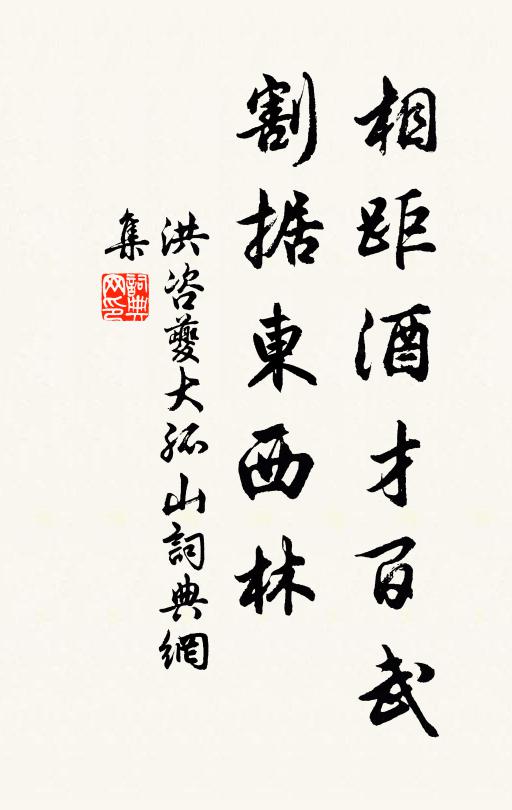 相距酒才百武
割据東西林
洪咨夔大孤山詞典網
集
詞典
网印